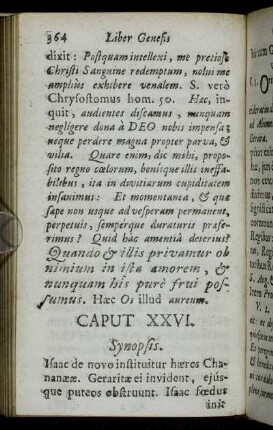 364 Liber Genesis
dixit: Postquam intellexi, me pretioso
Christi Sanguine redemptum, nolui me
amplius exhibere venalem. S. verò
Chrysostomus hom. 50. Hæc, in-
quit, audientes discamus, nunquam
negligere dona à DEO nobis impensa;
neque perdere magna propter parva, &
vilia. Quare enim, dic mihi, propo-
sito regno cœlorum, bonisque illis ineffa-
bilibus, ita in divitiarum cupiditatem
insanimus: Et momentanea, & quæ
sæpe non usque ad vesperam permanent,
perpetuis, sempérque duraturis præfe-
rimus? Quid hâc amentiâ deterius?
Quando & illis privamur ob
nimium in ista amorem, &
nunquam his purè frui pos-
sumus. Hæc Os illud aureum.
CAPUT XXVI.
Synopsis.
Isaac de novo instituitur hæres Cha-
nanææ. Geraritæ ei invident, ejús-
que puteos obstruunt. Isaac fœdus
init